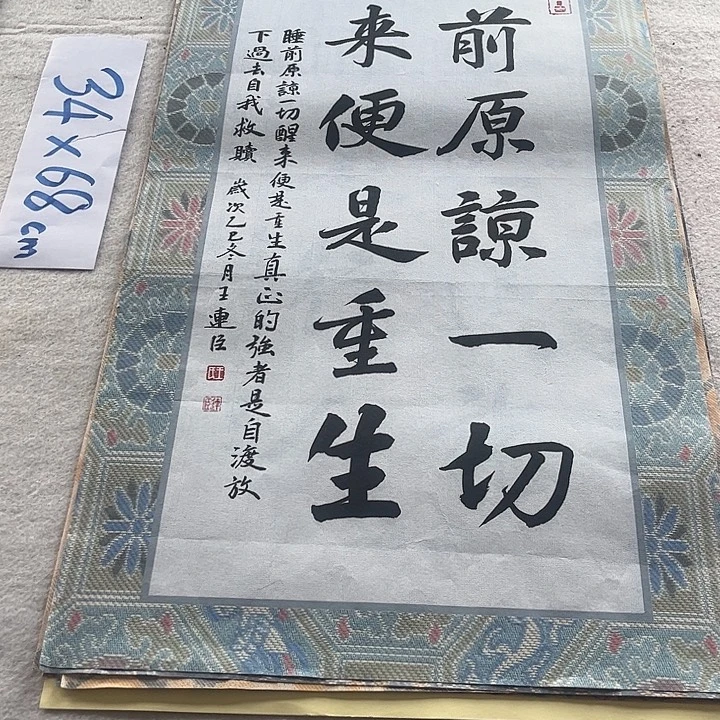 前原諒一切
来便是重生
睡前原諒一切醒来便是重生真正的強者是自渡放
下過去自我救贖 歲次乙巳冬月王連臣
34×68cm